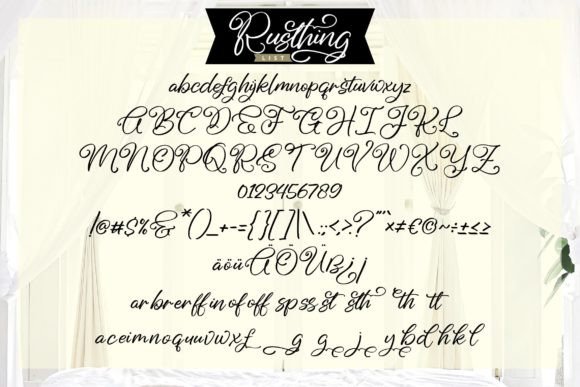 Rusthing
LIST
abcdefghijklmnopqrstuvwxyz
ABCDEFGHIJKL
MNOPQRSTUVWXYZ
0123456789
!@#$%&*()_+-={}[]|\:;<,>.?"'`×≠€©~÷±≤≥
äöüÄÖÜßij
ar br er ff in of off sp ss st sth th tt
aceimnouvwx£ g g e j e y bd h k l